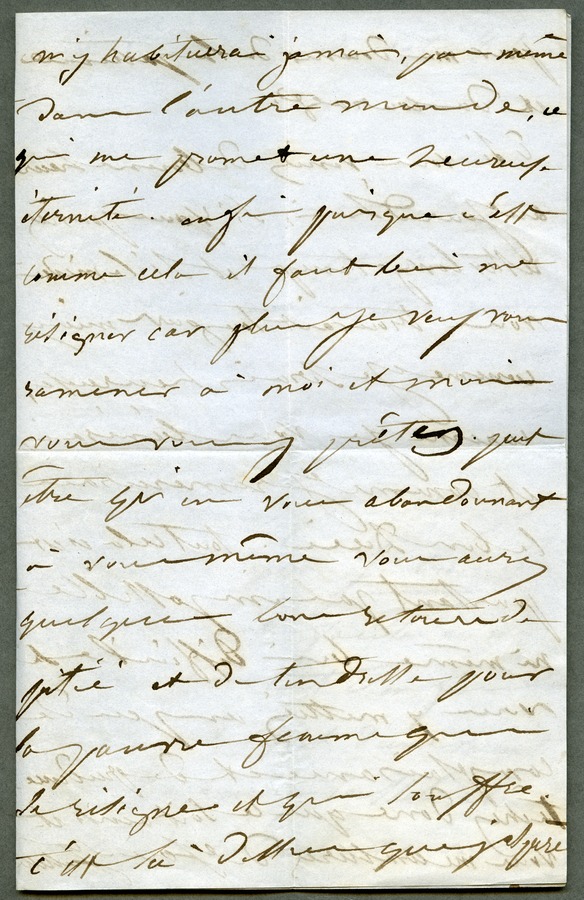 m'y habituerai jamais, pas même
dans l'autre monde, ce
qui me promet une heureuse
éternité. Enfin puisque c'est
comme cela il faut bien me
résigner car plus je veux vous
ramener à moi et moins
vous vous y prêtez. peut
être qu'en vous abandonnant
à vous même vous aurez
quelques bons retours de
pitié et de tendresse pour
la pauvre femme qui
se résigne et qui souffre.
c'est là dessus que j'espère